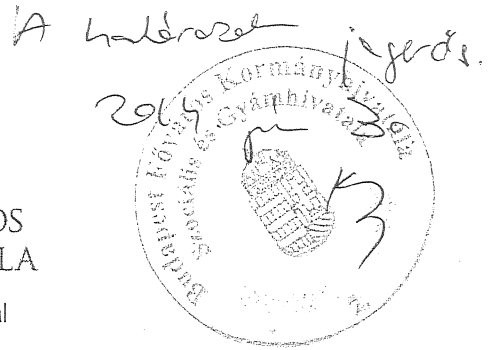 A határozat jogerős.
2014
Budapest Főváros Kormányhivatala
Szociális és Gyámhivatala
OS
LA
al